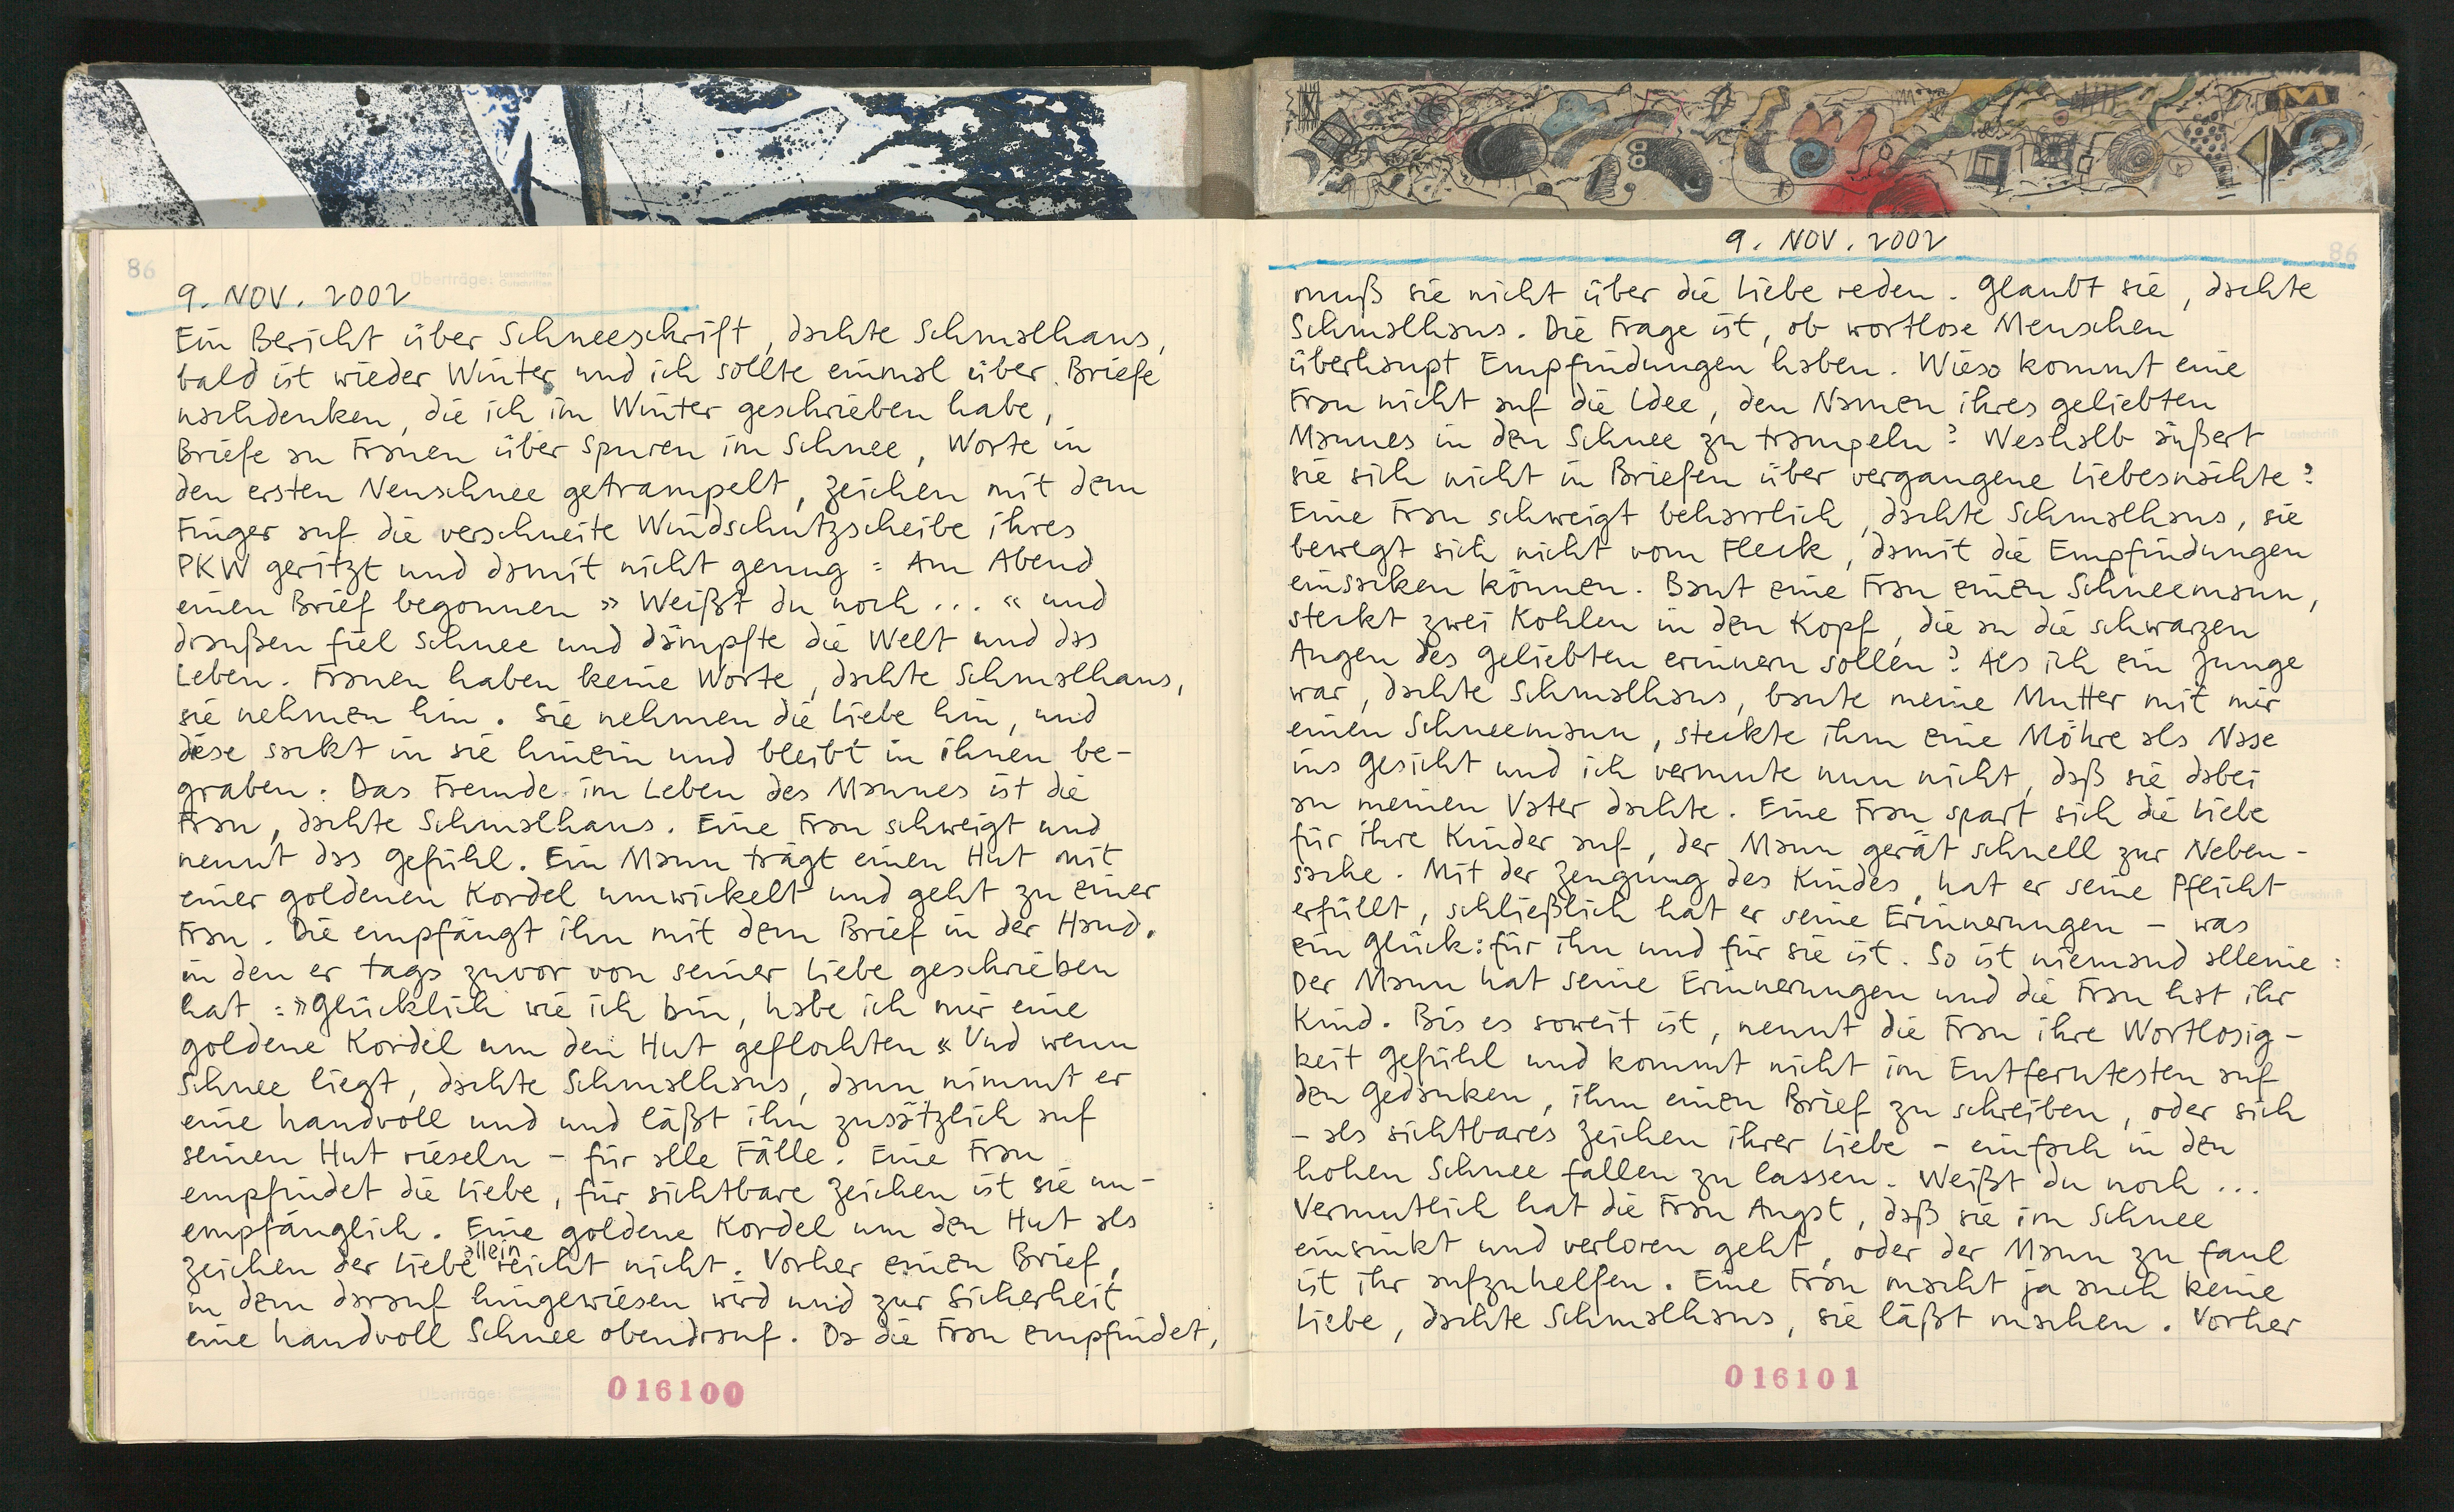 86
9. NOV. 2002
Ein Bericht über Schneeschrift, dachte Schmalhans,
bald ist wieder Winter und ich sollte einmal über Briefe
nachdenken, die ich im Winter geschrieben habe,
Briefe an Frauen über Spuren im Schnee, Worte in
den ersten Neuschnee getrampelt, Zeichen mit dem
Finger auf die verschneite Windschutzscheibe ihres
PKW geritzt und damit nicht genug: Am Abend
einen Brief begonnen » Weißt du noch ... « und
draußen fiel Schnee und dämpfte die Welt und das
Leben. Frauen haben keine Worte, dachte Schmalhans,
sie nehmen hin. Sie nehmen die Liebe hin, und
diese sackt in sie hinein und bleibt in ihnen be-
graben. Das Fremde im Leben des Mannes ist die
Frau, dachte Schmalhans. Eine Frau schweigt und
nennt das Gefühl. Ein Mann trägt einen Hut mit
einer goldenen Kordel umwickelt und geht zu einer
Frau. Die empfängt ihn mit dem Brief in der Hand,
in den er tags zuvor von seiner Liebe geschrieben
hat: »Glücklich wie ich bin, habe ich mir eine
goldene Kordel um den Hut geflochten « Und wenn
Schnee liegt, dachte Schmalhans, dann nimmt er
eine handvoll und und läßt ihn zusätzlich auf
seinen Hut rieseln – für alle Fälle. Eine Frau
empfindet die Liebe, für sichtbare Zeichen ist sie un-
empfänglich. Eine goldene Kordel um den Hut als
Zeichen der Liebe allein reicht nicht. Vorher einen Brief,
in dem darauf hingewiesen wird und zur Sicherheit
eine handvoll Schnee obendrauf. Da die Frau empfindet,
016100
9. NOV. 2002
86
muß sie nicht über die Liebe reden. Glaubt sie, dachte
Schmalhans. Die Frage ist, ob wortlose Menschen
überhaupt Empfindungen haben. Wieso kommt eine
Frau nicht auf die Idee, den Namen ihres geliebten
Mannes in den Schnee zu trampeln? Weshalb äußert
sie sich nicht in Briefen über vergangene Liebesnächte?
Eine Frau schweigt beharrlich, dachte Schmalhans, sie
bewegt sich nicht vom Fleck, damit die Empfindungen
einsacken können. Baut eine Frau einen Schneemann,
steckt zwei Kohlen in den Kopf, die an die schwarzen
Augen des Geliebten erinnern sollen? Als ich ein Junge
war, dachte Schmalhans, baute meine Mutter mit mir
einen Schneemann, steckte ihm eine Möhre als Nase
ins Gesicht und ich vermute nun nicht, daß sie dabei
an meinen Vater dachte. Eine Frau spart sich die Liebe
für ihre Kinder auf, der Mann gerät schnell zur Neben-
sache. Mit der Zeugung des Kindes, hat er seine Pflicht
erfüllt, schließlich hat er seine Erinnerungen – was
ein Glück: für ihn und für sie ist. So ist niemand alleine:
Der Mann hat seine Erinnerungen und die Frau hat ihr
Kind. Bis es soweit ist, nennt die Frau ihre Wortlosig-
keit Gefühl und kommt nicht im Entferntesten auf
den Gedanken, ihm einen Brief zu schreiben, oder sich
– als sichtbares Zeichen ihrer Liebe – einfach in den
hohen Schnee fallen zu lassen. Weißt du noch ...
Vermutlich hat die Frau Angst, daß sie im Schnee
einsinkt und verloren geht, oder der Mann zu faul
ist ihr aufzuhelfen. Eine Frau macht ja auch keine
Liebe, dachte Schmalhans, sie läßt machen. Vorher
016101